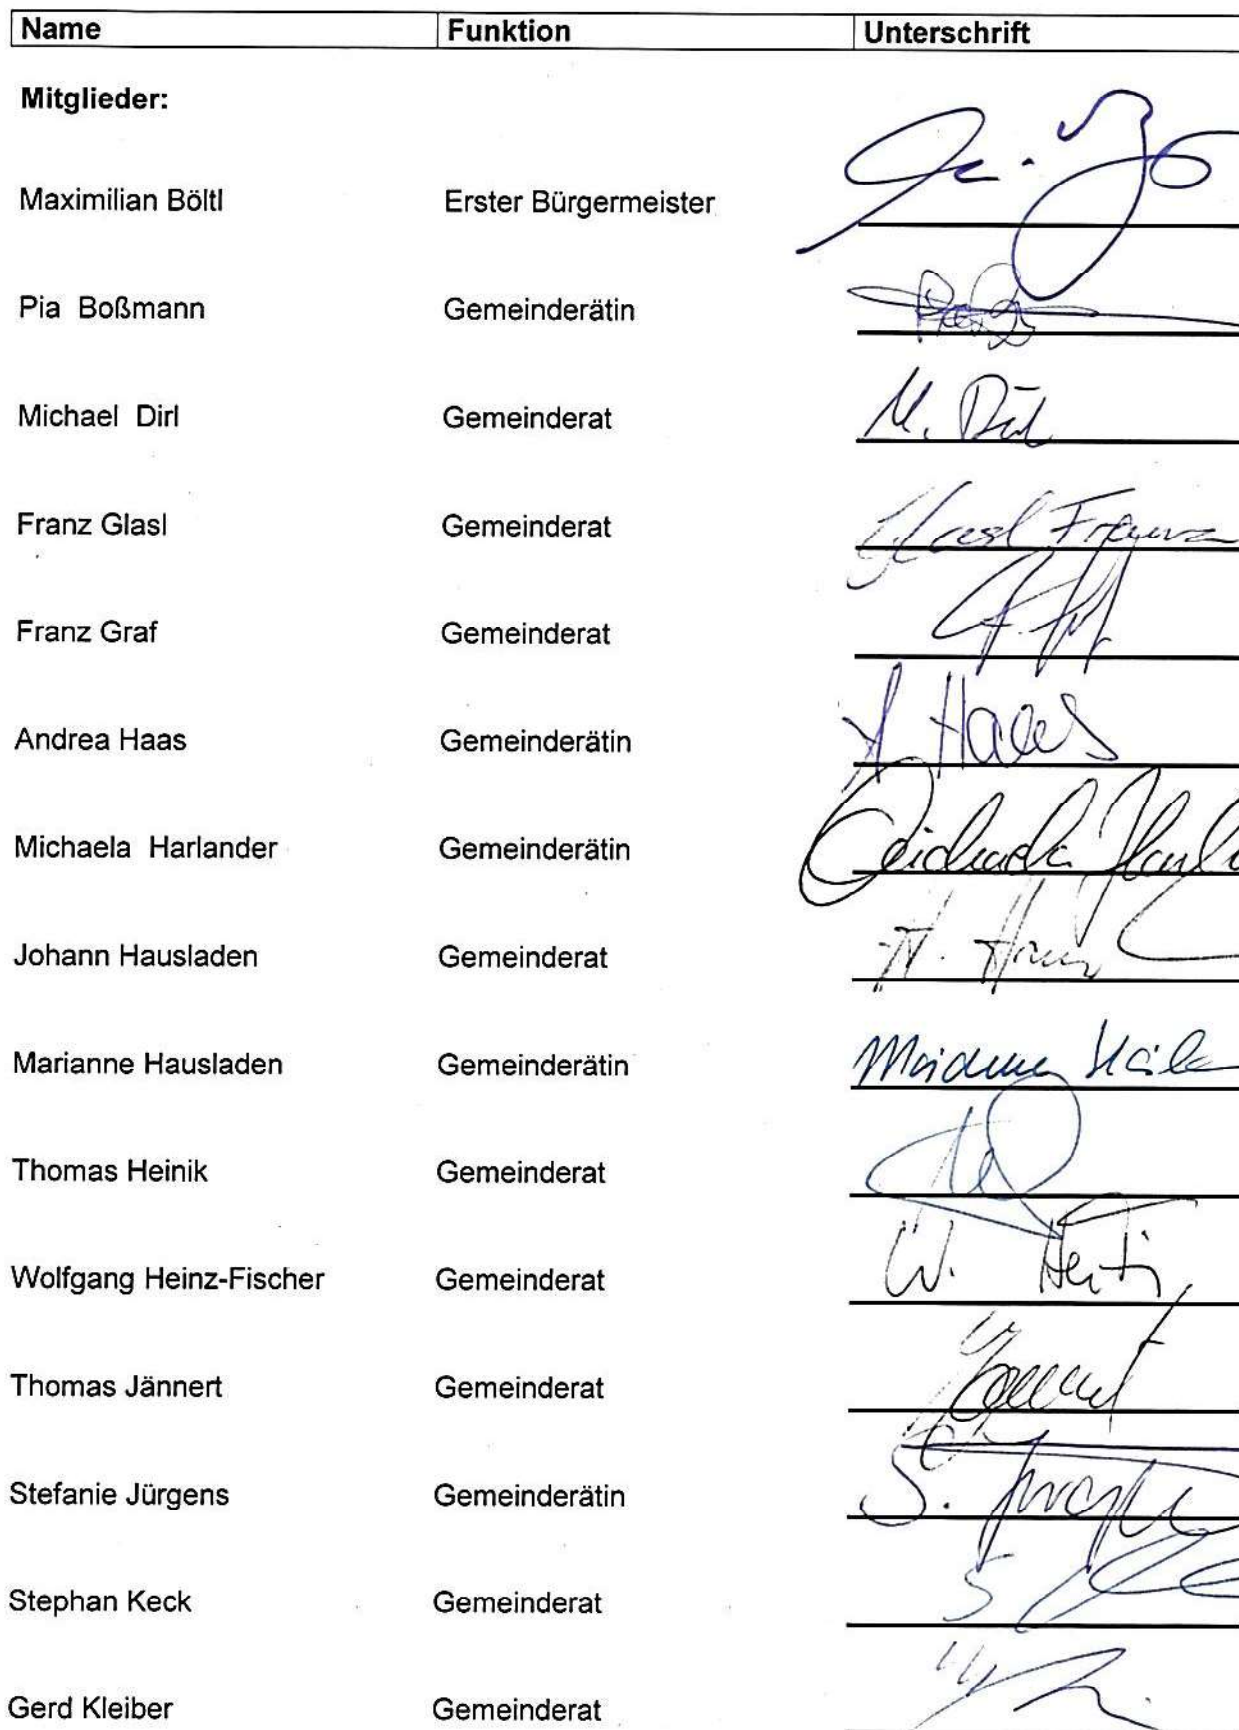 Name Funktion Unterschrift
Mitglieder:
Maximilian Böltl Erster Bürgermeister
Pia Boßmann Gemeinderätin
Michael Dirl Gemeinderat M. Dirl
Franz Glasl Gemeinderat Glasl Franz
Franz Graf Gemeinderat
Andrea Haas Gemeinderätin A Haas
Michaela Harlander Gemeinderätin Michaela
Johann Hausladen Gemeinderat
Marianne Hausladen Gemeinderätin Marianne
Thomas Heinik Gemeinderat
Wolfgang Heinz-Fischer Gemeinderat W.
Thomas Jännert Gemeinderat
Stefanie Jürgens Gemeinderätin S.
Stephan Keck Gemeinderat S
Gerd Kleiber Gemeinderat